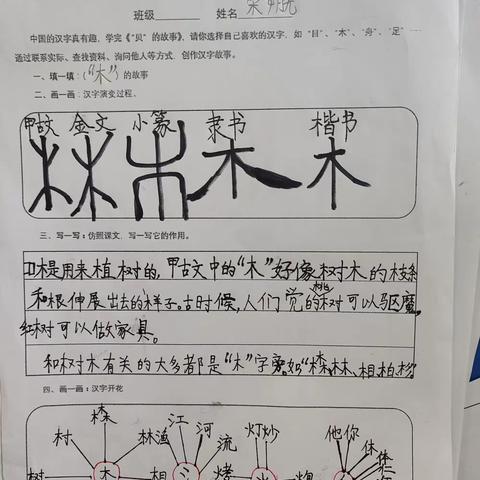 班级 姓名
中国的汉字真有趣，学完《“贝”的故事》，请你选择自己喜欢的汉字，如“目”、“木”、“舟”、“足”
通过联系实际、查找资料、询问他人等方式，创作汉字故事。
一、填一填：（“木”）的故事
二、画一画：汉字演变过程。
甲古文 金文 小篆 隶书 楷书
木 木
三、写一写：仿照课文，写一写它的作用。
是用来植树的，甲古文中的“木”好像树木的枝
和根伸展出去的样子。古时候，人们觉的桃树可以驱魔，
红树可以做家具。
和树木有关的大多都是“木”字旁。如“森、林、相、柏、杉”
四、画一画：汉字开花
森 江 河 灯 炒 他 你
村 林 渔 流 休 体
树 木 相 氵 烤 火 炮